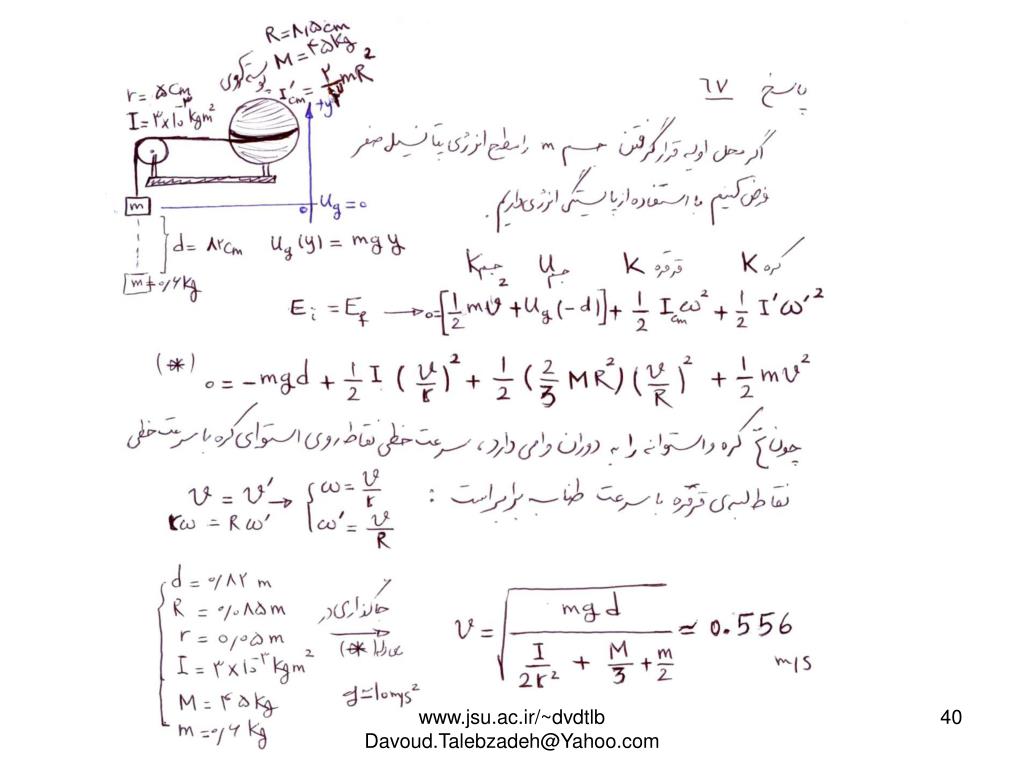 پاسخ ٦٧
R=۸٫۵cm
M=۴۵kg
پوسته کروی I'cm = ۲/۳ mR²
r= ۵cm
I=۳×۱۰⁻³kgm²
+y
اگر محل اولیه قرار گرفتن جسم m را سطح انرژی پتانسیل صفر
فرض کنیم با استفاده از پایستگی انرژی داریم.
m
0 Ug=0
d= ۸۲cm Ug(y) = mgy
m=۰٫۶kg
K جسم U جسم K قرقره K کره
Ei = Ef → 0=[1/2 mv² + Ug(-d)] + 1/2 Icm ω² + 1/2 I'ω'²
(*) 0 = -mgd + 1/2 I (v/r)² + 1/2 (2/3 MR²)(v/R)² + 1/2 mv²
چون نخ کره و استوانه را به دوران وامی دارد، سرعت خطی نقاط روی استوای کره با سرعت خطی
نقاط لبه‌ی قرقره با سرعت طناب برابر است :
v = v' → { ω = v/r
rω = Rω' ω' = v/R
d = ۰٫۸۲ m
R = ۰٫۰۸۵m
r = ۰٫۰۵m
I = ۳×۱۰⁻³kgm²
M = ۴۵kg
m = ۰٫۶ kg
جاگذاری در
رابطه (*)
g≃10m/s²
v = √(mgd / (I/2r² + M/3 + m/2)) ≃ 0.556 m/s
www.jsu.ac.ir/~dvdtlb
Davoud.Talebzadeh@Yahoo.com
40